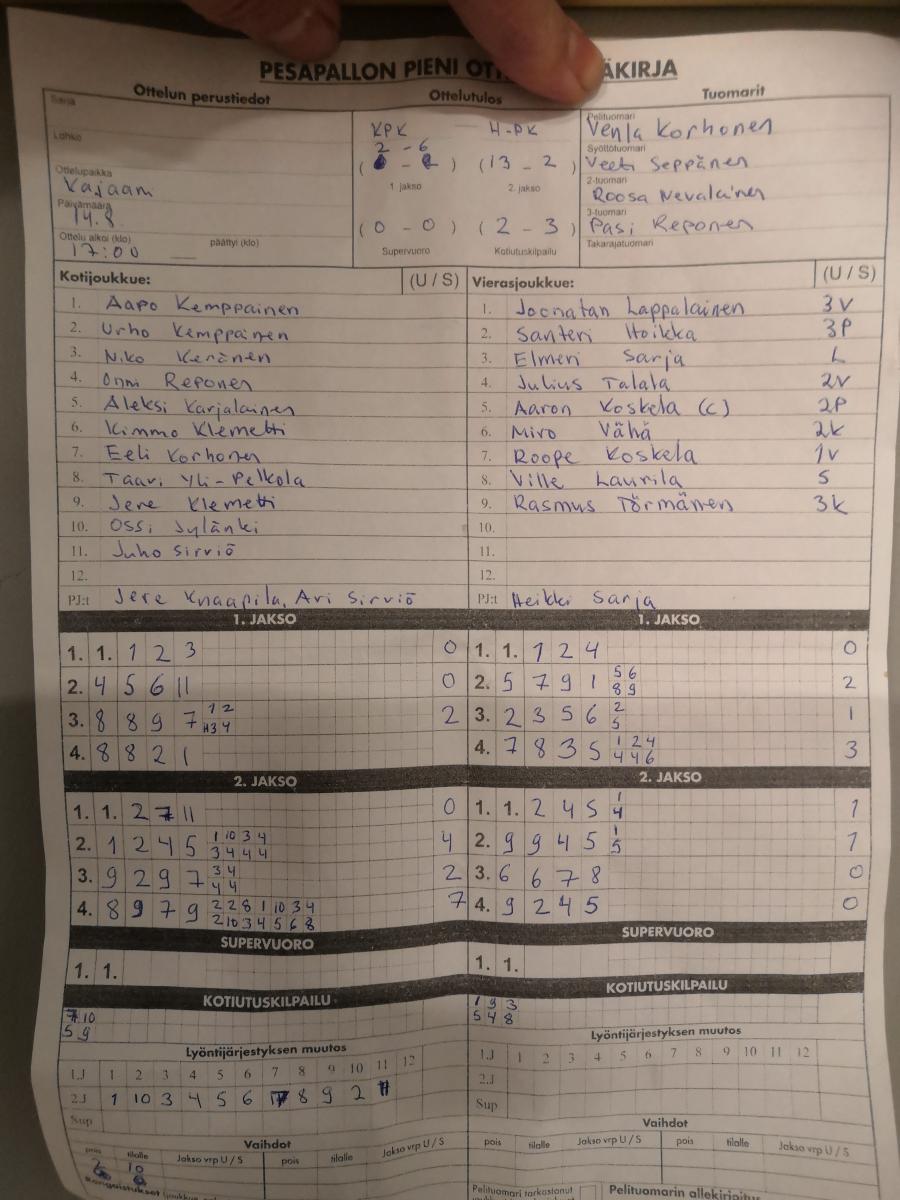 PESÄPALLON PIENI ÄKIRJA
Ottelun perustiedot
Sarja
Lohko
Ottelupaikka
Kajaani
Päivämäärä
14.8
Ottelu alkoi (klo) päättyi (klo)
17:00
Ottelutulos
KPK H-PK
2 - 6
( - ) (13 - 2)
1 jakso 2. jakso
(0 - 0) (2 - 3)
Supervuoro Kotiutuskilpailu
Tuomarit
Pelituomari
Venla Korhonen
Syöttötuomari
Veeti Seppänen
2-tuomari
Roosa Nevalainen
3-tuomari
Pasi Reponen
Takarajatuomari
Kotijoukkue: (U / S)
1. Aapo Kemppainen
2. Urho Kemppainen
3. Niko Keränen
4. Onni Reponen
5. Aleksi Karjalainen
6. Kimmo Klemetti
7. Eeli Korhonen
8. Taavi Yli-Pelkola
9. Jere Klemetti
10. Ossi Jylänki
11. Juho Sirviö
12.
PJ:t Jere Knaapila, Ari Sirviö
Vierasjoukkue: (U / S)
1. Joonatan Lappalainen 3V
2. Santeri Hoikka 3P
3. Elmeri Sarja L
4. Julius Talala 2V
5. Aaron Koskela (C) 2P
6. Miro Vähä 2K
7. Roope Koskela 1V
8. Ville Laurila S
9. Rasmus Törmänen 3K
10.
11.
12.
PJ:t Heikki Sarja
1. JAKSO
1. 1. 1 2 3 0
2. 4 5 6 11 0
3. 8 8 9 7 1 2 2
11 3 4
4. 8 8 2 1
1. JAKSO
1. 1. 1 2 4 0
2. 5 7 9 1 5 6 2
8 9
3. 2 3 5 6 2 1
5
4. 7 8 3 5 1 2 4 3
4 4 6
2. JAKSO
1. 1. 2 7 11 0
2. 1 2 4 5 1 10 3 4 4
3 4 4 4
3. 9 2 9 7 3 4 2
4 4
4. 8 9 7 9 2 2 8 1 10 3 4 7
2 10 3 4 5 6 8
2. JAKSO
1. 1. 2 4 5 1 1
4
2. 9 9 4 5 1 1
5
3. 6 6 7 8 0
4. 9 2 4 5 0
SUPERVUORO
1. 1.
SUPERVUORO
1. 1.
KOTIUTUSKILPAILU
7 10
5 9
KOTIUTUSKILPAILU
1 9 3
5 4 8
Lyöntijärjestyksen muutos
1.J 1 2 3 4 5 6 7 8 9 10 11 12
2.J 1 10 3 4 5 6 8 9 2
Sup
Lyöntijärjestyksen muutos
1.J 1 2 3 4 5 6 7 8 9 10 11 12
2.J
Sup
Vaihdot
pois tilalle Jakso vrp U / S pois tilalle Jakso vrp U / S
2 10
Vaihdot
pois tilalle Jakso vrp U / S pois tilalle Jakso vrp U / S
Rangaistukset
Pelituomari tarkastanut
Pelituomarin allekirjoitus